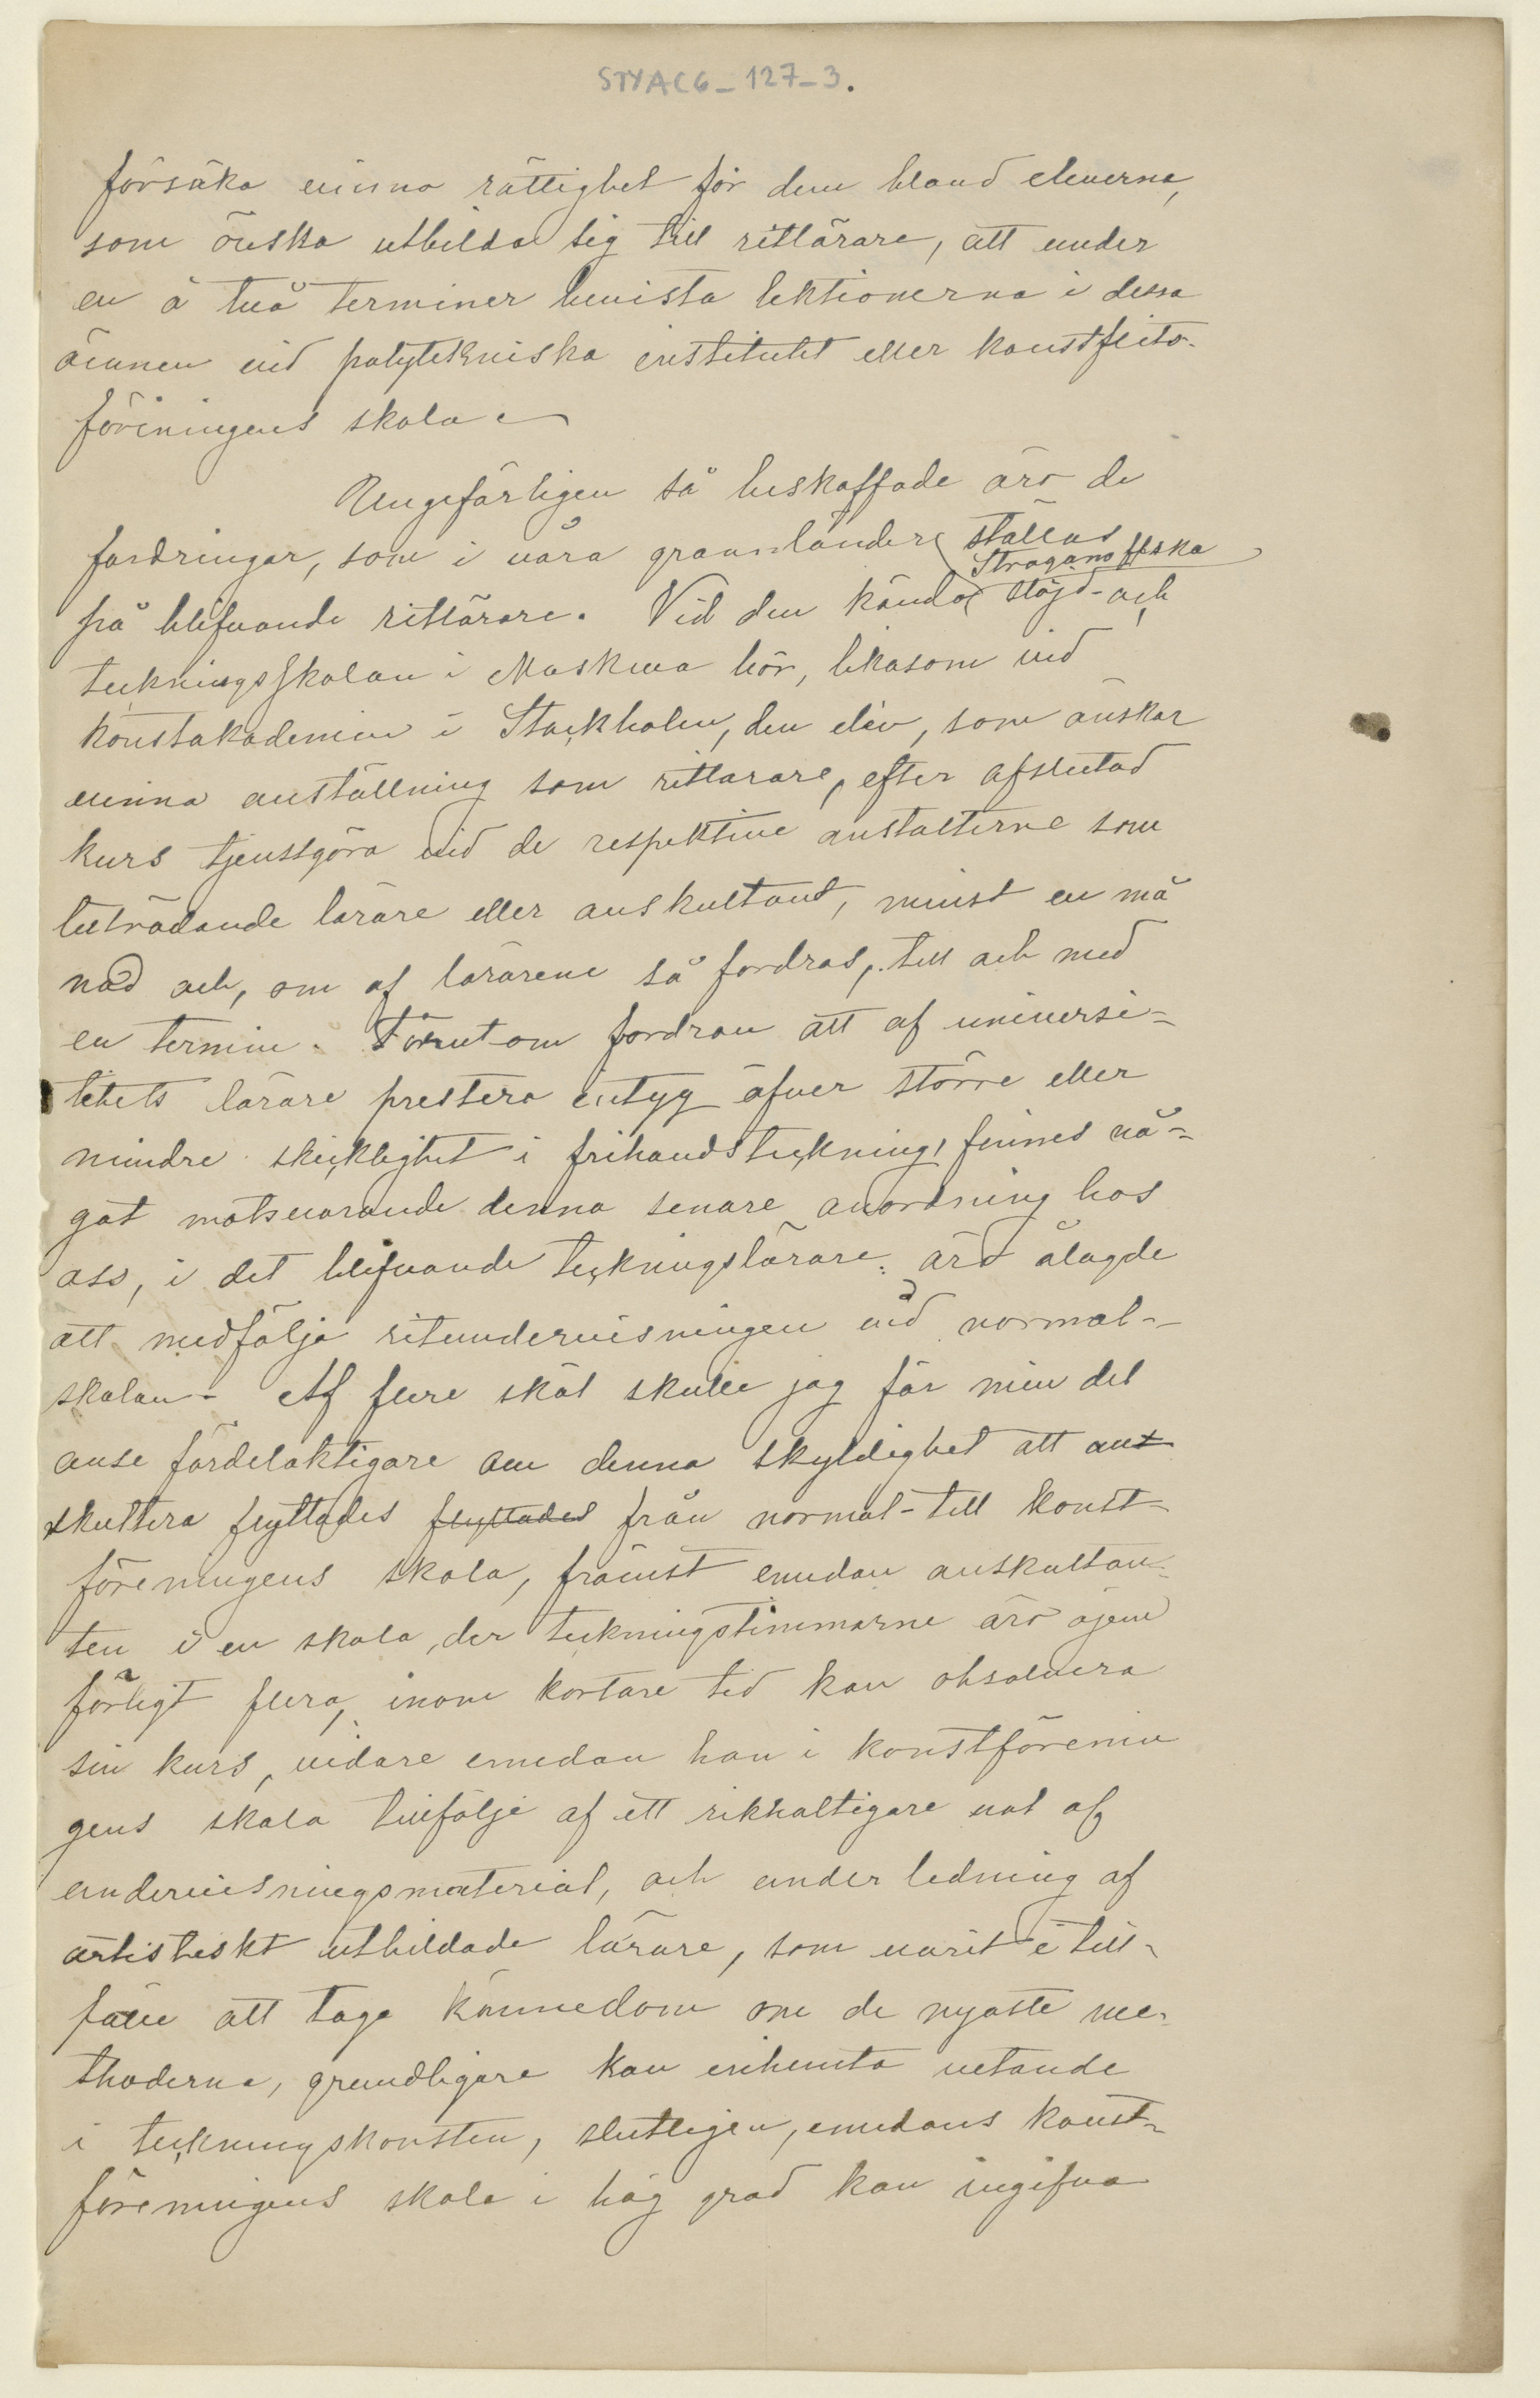 STYAC6_127_3.
försöka vinna rättighet för dem bland eleverna,
som önska utbilda sig till ritlärare, att under
en à två terminer bevista lektionerna i dessa
ämnen vid polytekniska institutet eller konstflits-
föreningens skola.
Ungefärligen så beskaffade äro de
fordringar, som i våra grannländer ställas
på blifvande ritlärare. Vid den kända Stroganoffska slöjd- och
teckningsskolan i Moskwa bör, likasom vid
konstakademin i Stockholm, den elev, som önskar
vinna anställning som ritlärare, efter afslutad
kurs tjenstgöra vid de respektive anstalterne som
biträdande lärare eller auskultant, minst en må
nad och, om af lärarene så fordras, till och med
en termin. Förutom fordran att af universi-
tetets lärare prestera intyg öfver större eller
mindre skicklighet i frihandsteckning, finnes nå-
got motsvarande denna senare anordning hos
oss, i det blifvande teckningslärare äro ålagde
att medfölja ritundervisningen vid normal-
skolan. Af flere skäl skulle jag för min del
anse fördelaktigare om denna skyldighet att au
skultera flyttades flyttades från normal- till konst-
föreningens skola, främst emedan auskultan-
ten i en skola, der teckningstimmarne äro ojem
förligt flera, inom kortare tid kan absolvera
sin kurs, vidare emedan han i konstförenin
gens skola tillfölje af ett rikhaltigare val af
undervisningsmaterial, och under ledning af
artistiskt utbildade lärare, som varit i till-
fälle att taga kännedom om de nyaste me-
thoderna, grundligare kan inhemta vetande
i teckningskonsten, slutligen, emedans konst-
föreningens skola i hög grad kan ingifva